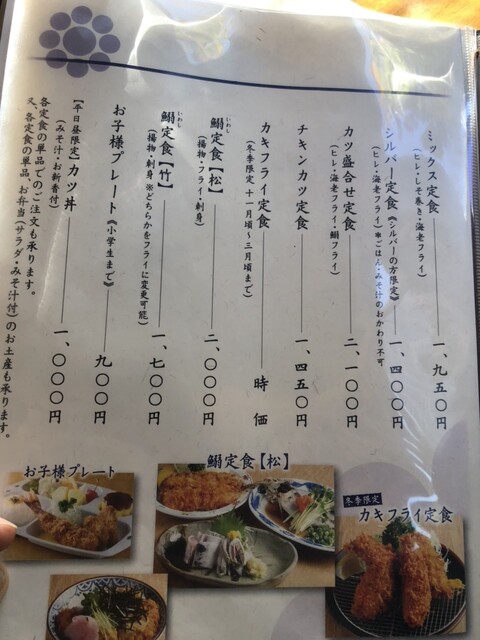 ミックス定食 一、九五〇円
(ヒレ・しそ巻き・海老フライ)
シルバー定食《シルバーの方限定》 一、四〇〇円
(ヒレ・海老フライ)※ごはん・みそ汁のおかわり不可
カツ盛合せ定食 二、一〇〇円
(ヒレ・海老フライ・鰯フライ)
チキンカツ定食 一、四五〇円
カキフライ定食 時価
(冬季限定 十一月頃~三月頃まで)
いわし
鰯定食【松】 二、〇〇〇円
(揚物・フライ・刺身)
いわし
鰯定食【竹】 一、七〇〇円
(揚物・刺身 ※どちらかをフライに変更可能)
お子様プレート《小学生まで》 九〇〇円
【平日昼限定】カツ丼 一、〇〇〇円
(みそ汁・お新香付)
各定食の単品でのご注文も承ります。
又、各定食の単品、お弁当(サラダ・みそ汁付)のお土産も承ります。
お子様プレート
鰯定食【松】
冬季限定
カキフライ定食